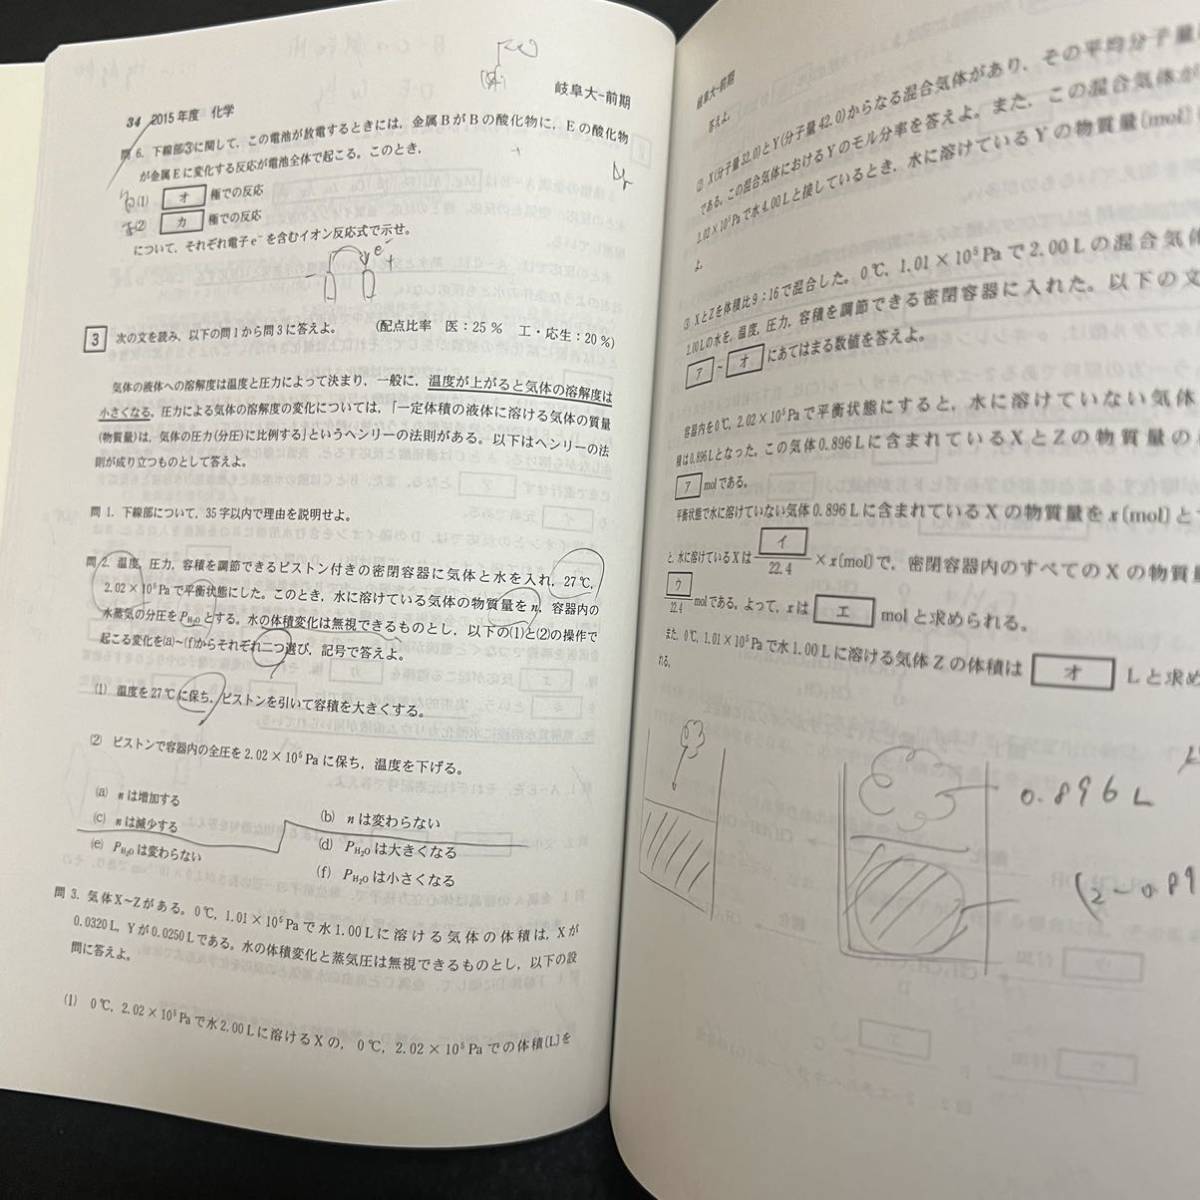 34 2015年度 化学
岐阜大-前期
問 6. 下線部③に関して，この電池が放電するときには，金属 B が B の酸化物に，E の酸化物
が金属 E に変化する反応が電池全体で起こる。このとき，
(1) オ 極での反応
(2) カ 極での反応
について，それぞれ電子 e⁻ を含むイオン反応式で示せ。
e⁻
－ ＋
3 次の文を読み，以下の問 1 から問 3 に答えよ。 (配点比率 医：25 % 工・応生：20 %)
気体の液体への溶解度は温度と圧力によって決まり，一般に，温度が上がると気体の溶解度は
小さくなる。圧力による気体の溶解度の変化については，「一定体積の液体に溶ける気体の質量
(物質量)は，気体の圧力(分圧)に比例する」というヘンリーの法則がある。以下はヘンリーの法
則が成り立つものとして答えよ。
問 1. 下線部について，35 字以内で理由を説明せよ。
問 2. 温度，圧力，容積を調節できるピストン付きの密閉容器に気体と水を入れ，27 ℃，
2.02 × 10⁵ Pa で平衡状態にした。このとき，水に溶けている気体の物質量を n，容器内の
水蒸気の分圧を P_H₂O とする。水の体積変化は無視できるものとし，以下の(1)と(2)の操作で
起こる変化を(a)～(f)からそれぞれ二つ選び，記号で答えよ。
(1) 温度を 27 ℃ に保ち，ピストンを引いて容積を大きくする。
(2) ピストンで容器内の全圧を 2.02 × 10⁵ Pa に保ち，温度を下げる。
(a) n は増加する (b) n は変わらない
(c) n は減少する (d) P_H₂O は大きくなる
(e) P_H₂O は変わらない (f) P_H₂O は小さくなる
問 3. 気体 X～Z がある。0 ℃，1.01 × 10⁵ Pa で水 1.00 L に溶ける気体の体積は，X が
0.0320 L，Y が 0.0250 L である。水の体積変化と蒸気圧は無視できるものとし，以下の設
問に答えよ。
(1) 0 ℃，2.02 × 10⁵ Pa で水 2.00 L に溶ける X の，0 ℃，2.02 × 10⁵ Pa での体積〔L〕を
岐阜大-前期
答えよ。
(2) X(分子量 32.0)と Y(分子量 42.0)からなる混合気体があり，その平均分子量
である。この混合気体における Y のモル分率を答えよ。また，この混合気体が
2.02 × 10⁵ Pa で水 4.00 L と接しているとき，水に溶けている Y の物質量〔mol〕
よ。
(3) X と Z を体積比 9：16 で混合した。0 ℃，1.01 × 10⁵ Pa で 2.00 L の混合気体
2.00 L の水を，温度，圧力，容積を調節できる密閉容器に入れた。以下の文
ア ～ オ にあてはまる数値を答えよ。
容器内を 0 ℃，2.02 × 10⁵ Pa で平衡状態にすると，水に溶けていない気体
積は 0.896 L となった。この気体 0.896 L に含まれている X と Z の物質量の
ア mol である。
平衡状態で水に溶けていない気体 0.896 L に含まれている X の物質量を x〔mol〕と
と，水に溶けている X は イ/22.4 × x〔mol〕で，密閉容器内のすべての X の物質量
ウ/22.4 mol である。よって，x は エ mol と求められる。
また，0 ℃，1.01 × 10⁵ Pa で水 1.00 L に溶ける気体 Z の体積は オ L と求め
れる。
0.896 L
(2－0.89